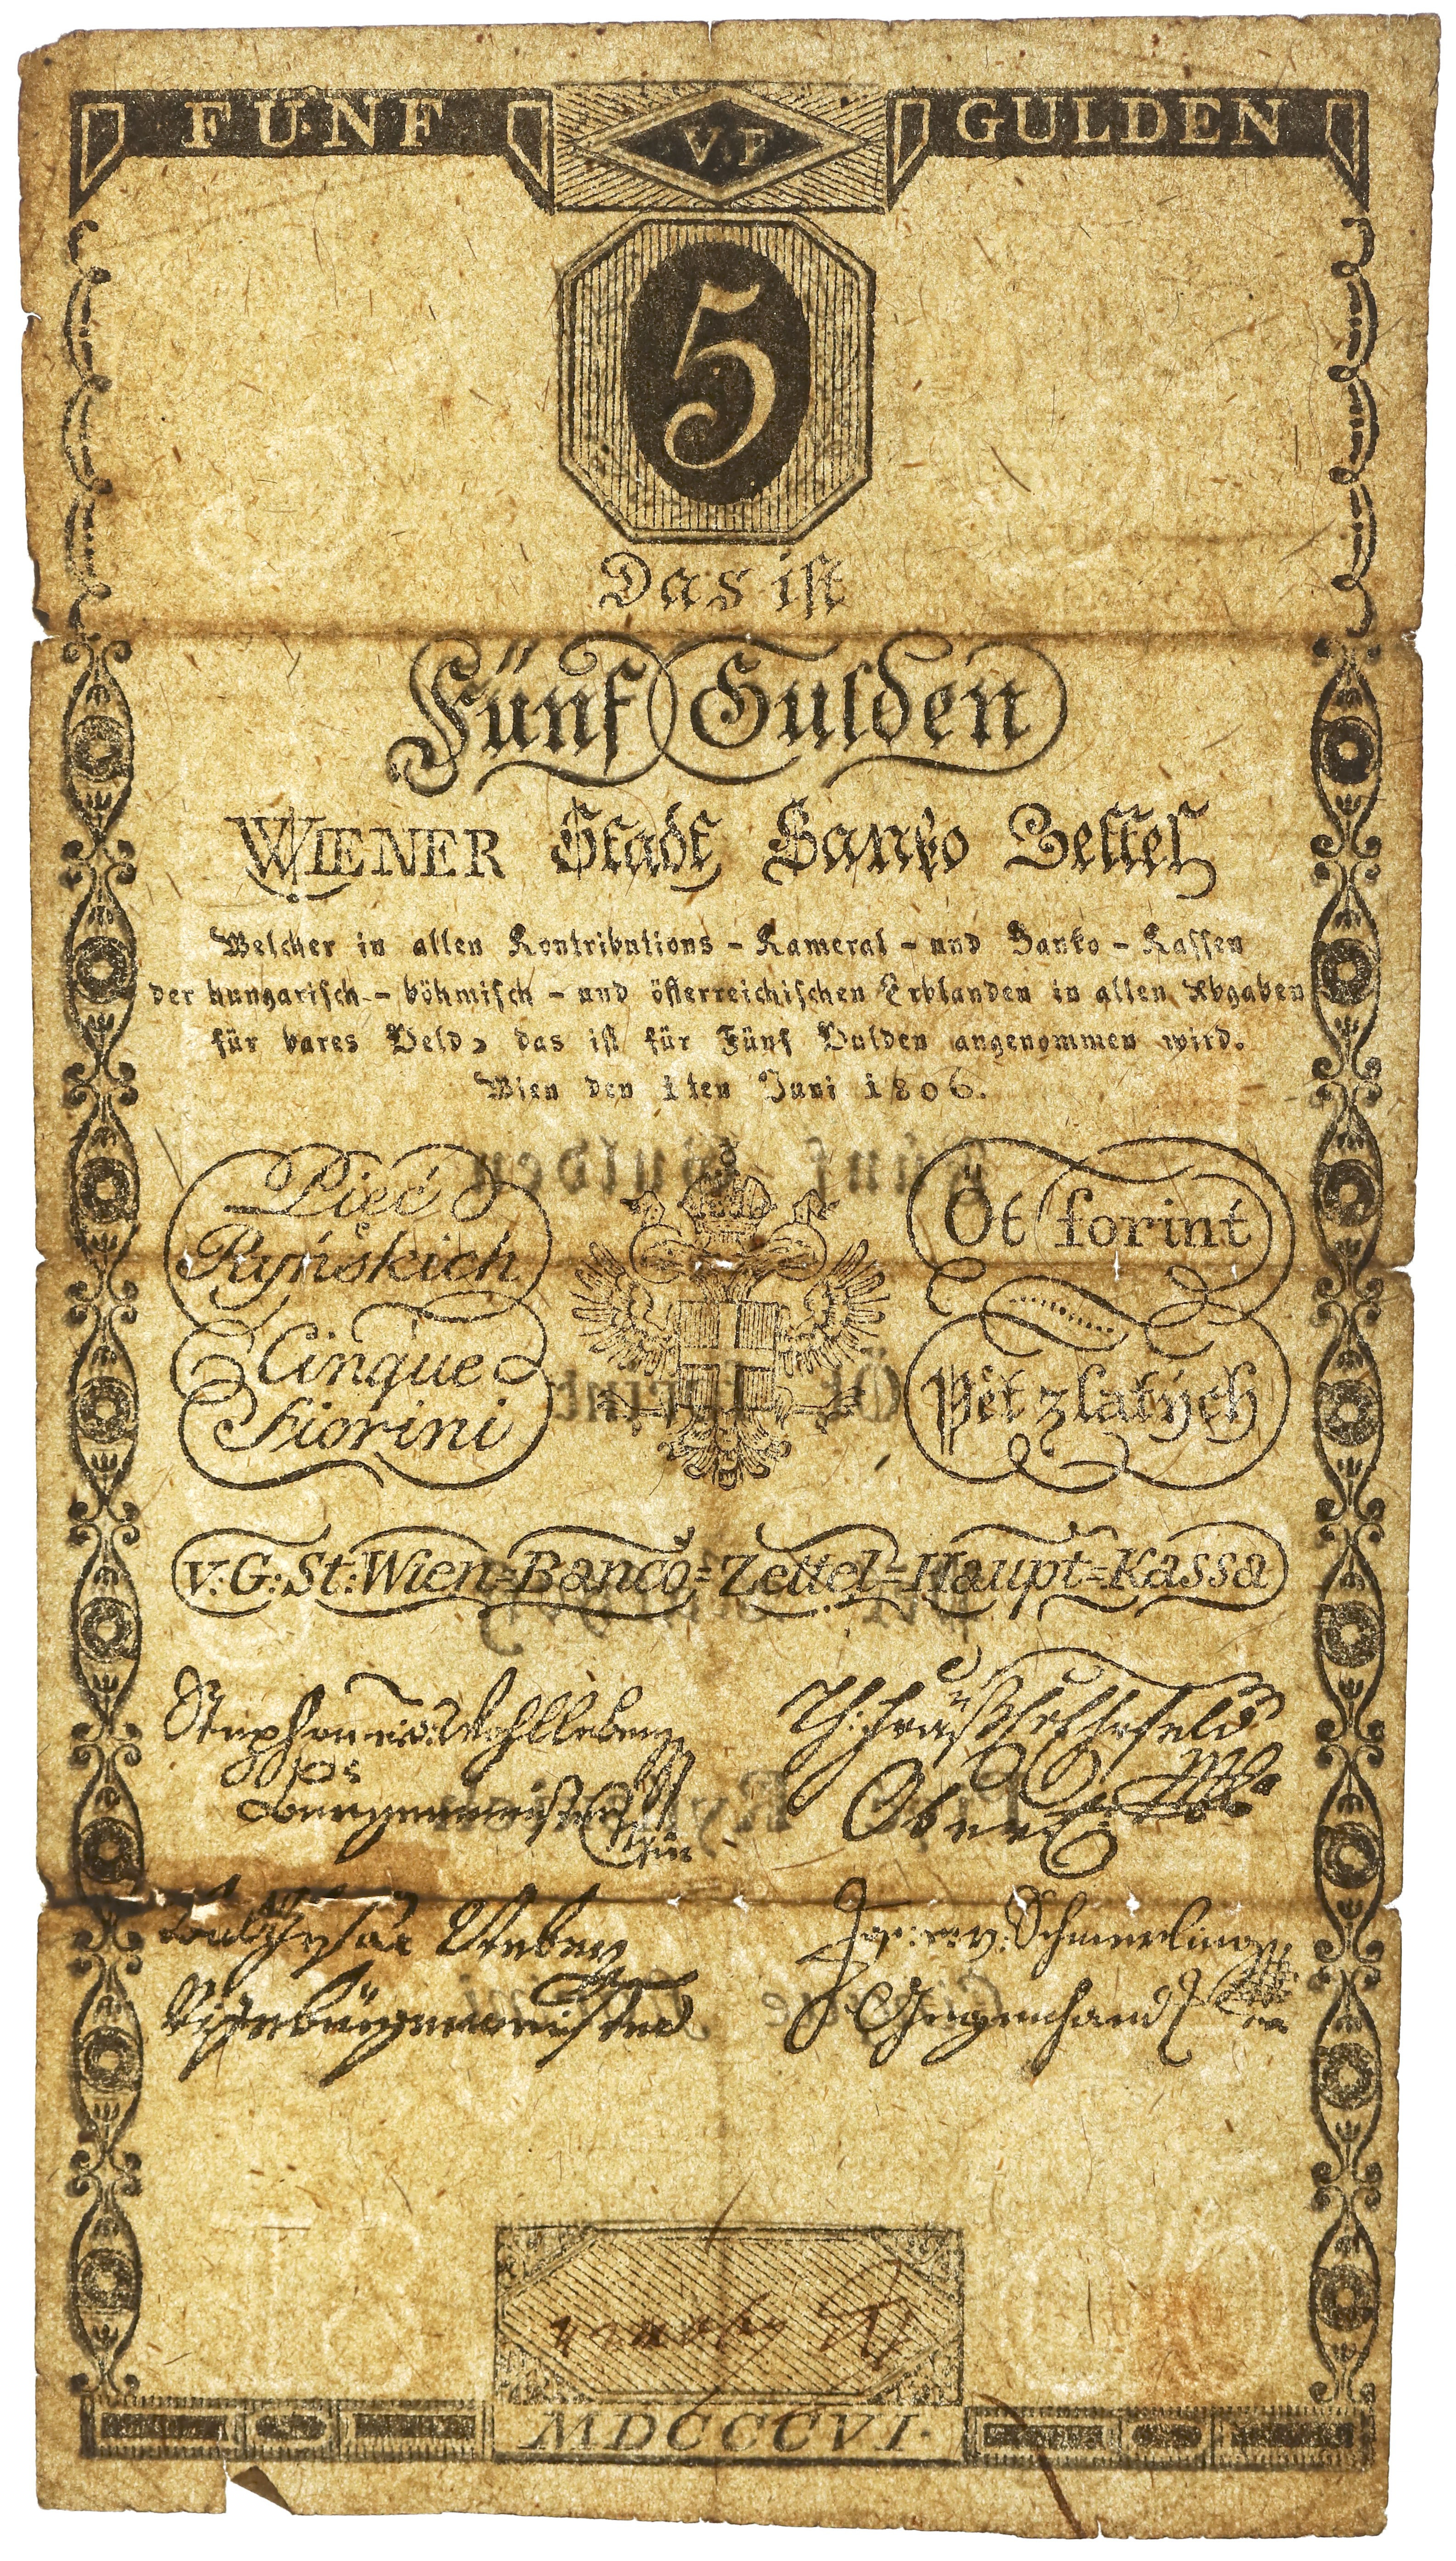 FÜNF V.F GULDEN
5
Das ist
Fünf Gulden
WIENER Stadt Banko Zettel
Welcher in allen Kontributions - Kameral - und Banko - Kassen
der hungarisch - böhmisch - und österreichischen Erblanden in allen Abgaben
für bares Geld, das ist für Fünf Gulden angenommen wird.
Wien den 1ten Juni 1806.
Pięć
Ryńskich
Cinque
Fiorini
Öt forint
Pět zlatých
V: G: St: Wien=Banco=Zettel=Haupt=Kassa
Stephan v: Wohlleben
Burgermeister
Obere
Jos: v: Schmerling
Gegenhand
Vizebürgermeister
MDCCCVI.